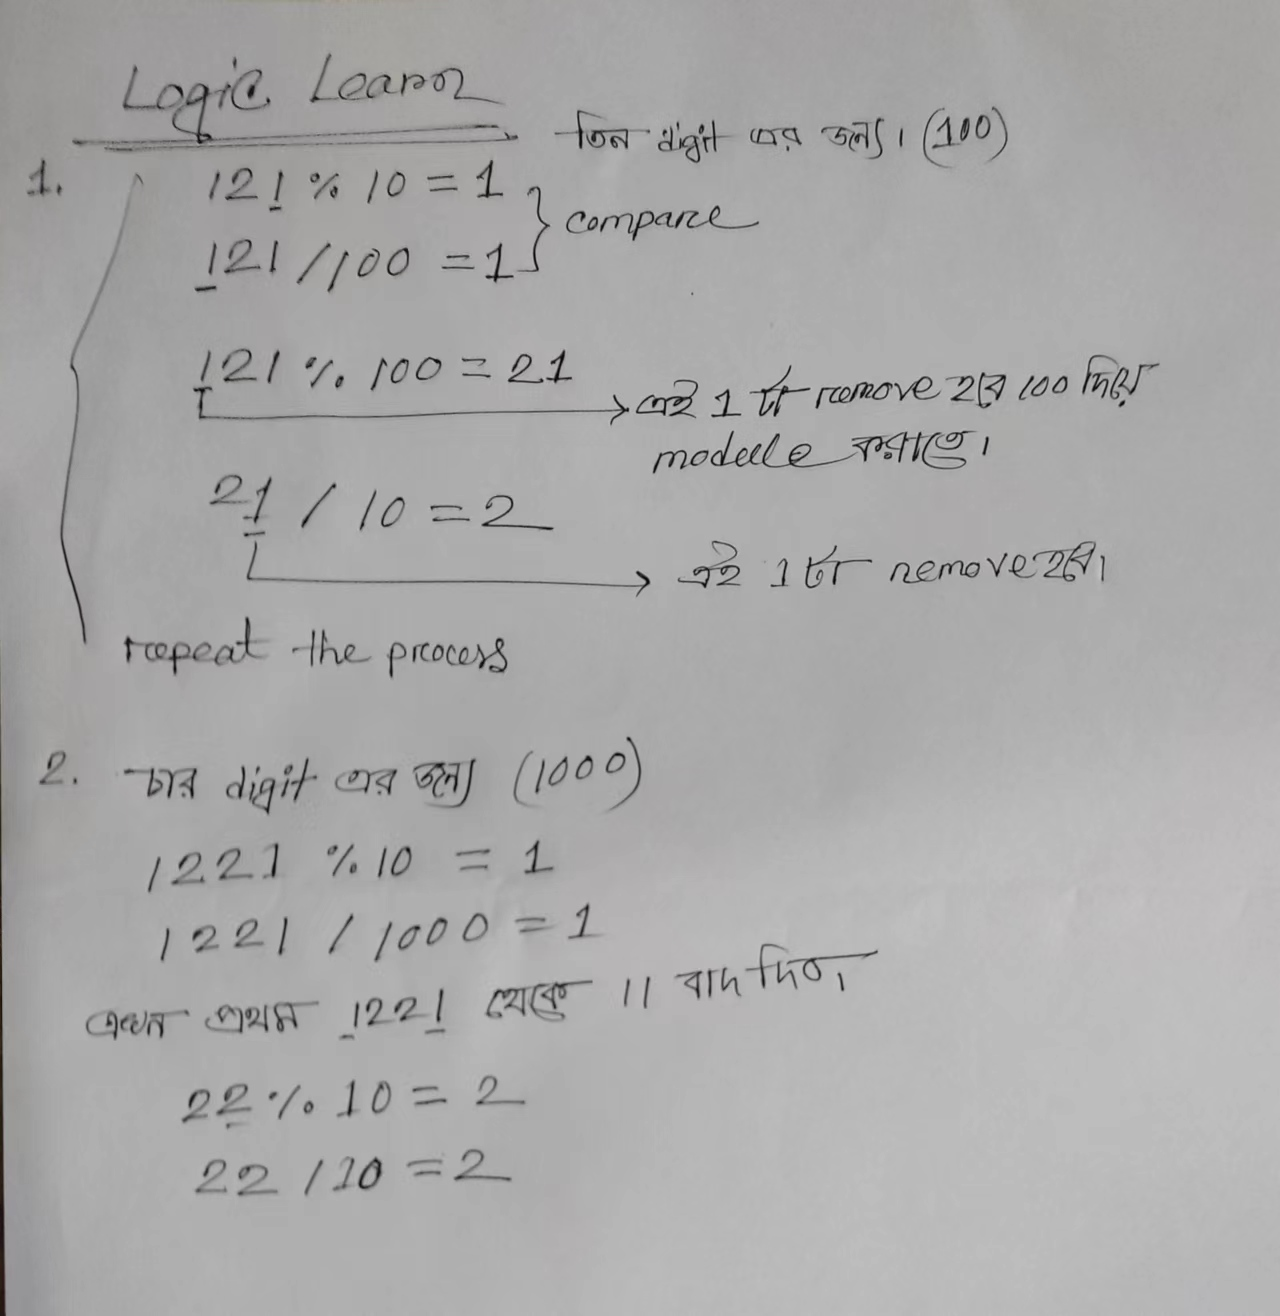 Logic Learn
তিন digit এর জন্য। (100)
1. 121 % 10 = 1
121 / 100 = 1
compare
121 % 100 = 21
এই 1 টা remove হবে 100 দিয়ে
module করাতে।
21 / 10 = 2
এই 1 টা remove হবে।
repeat the process
2. চার digit এর জন্য (1000)
1221 % 10 = 1
1221 / 1000 = 1
এখন প্রথম 1221 থেকে 11 বাদ দিব,
22 % 10 = 2
22 / 10 = 2